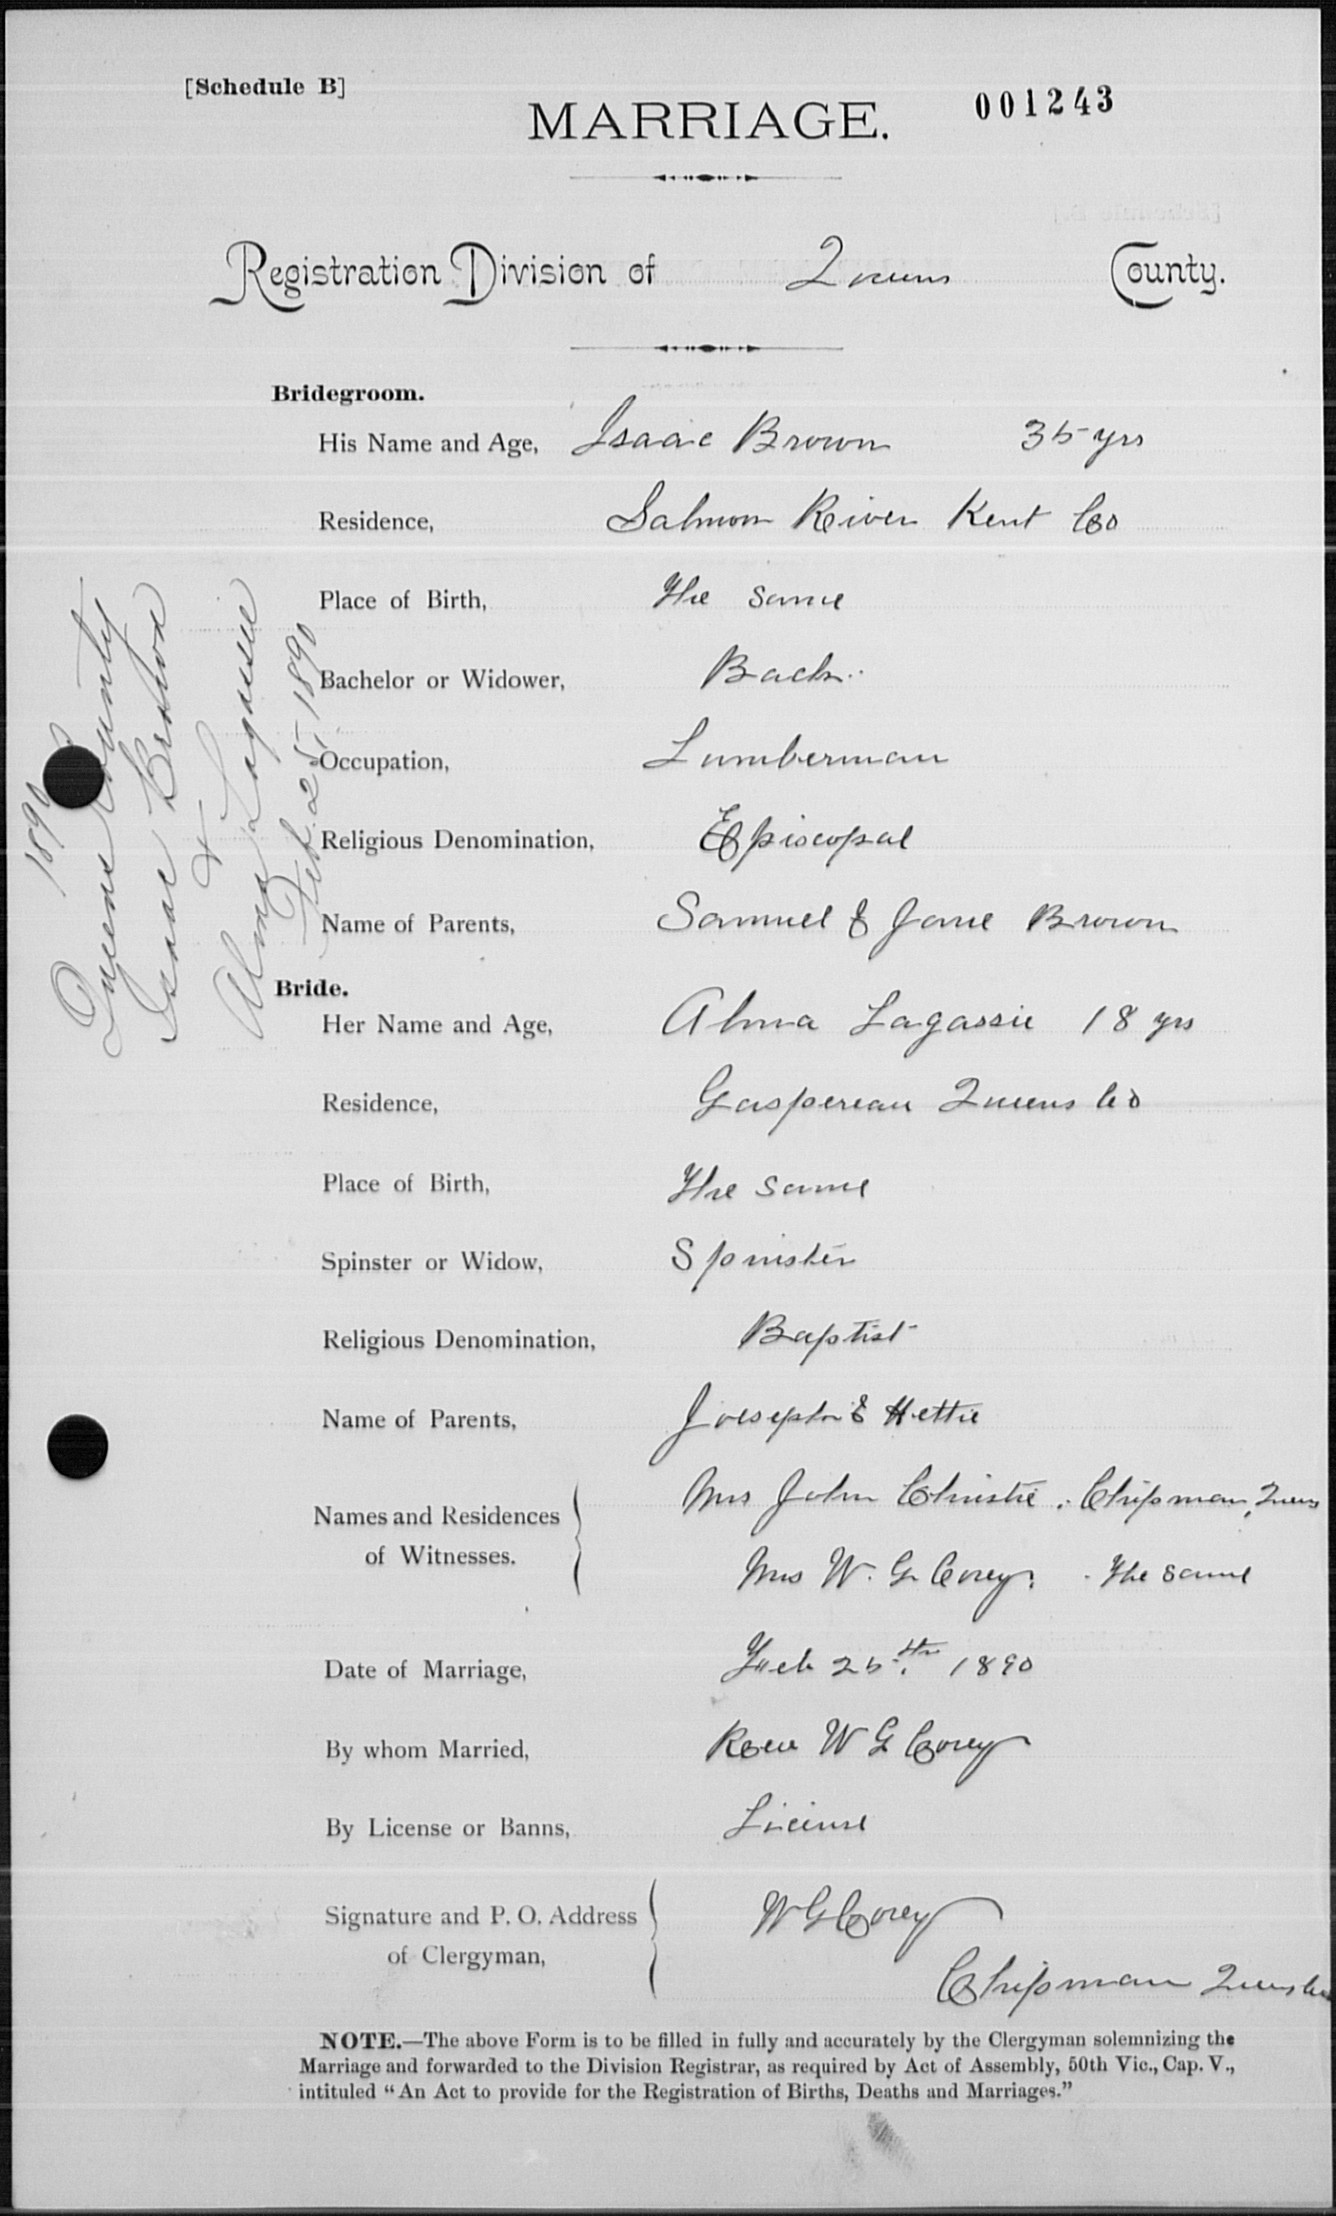 [Schedule B]
MARRIAGE.
001243
Registration Division of Queens County.
Bridegroom.
His Name and Age, Isaac Brown 35 yrs
Residence, Salmon River Kent Co
Place of Birth, The same
Bachelor or Widower, Bach.
Occupation, Lumberman
Religious Denomination, Episcopal
Name of Parents, Samuel & Jane Brown
Bride.
Her Name and Age, Alma Lagassie 18 yrs
Residence, Gaspereau Queens Co
Place of Birth, The same
Spinster or Widow, Spinster
Religious Denomination, Baptist
Name of Parents, Joeseph & Hettie
Names and Residences of Witnesses.
Mrs John Christie. Chipman, Queens
Mrs W. G. Corey. The same
Date of Marriage, Feb 25th 1890
By whom Married, Rev W G Corey
By License or Banns, License
Signature and P. O. Address of Clergyman,
W G Corey
Chipman Queens Co
NOTE.—The above Form is to be filled in fully and accurately by the Clergyman solemnizing the
Marriage and forwarded to the Division Registrar, as required by Act of Assembly, 50th Vic., Cap. V.,
intituled "An Act to provide for the Registration of Births, Deaths and Marriages."
1890
Queens County
Isaac Brown
&
Alma Lagassie
Feb. 25, 1890